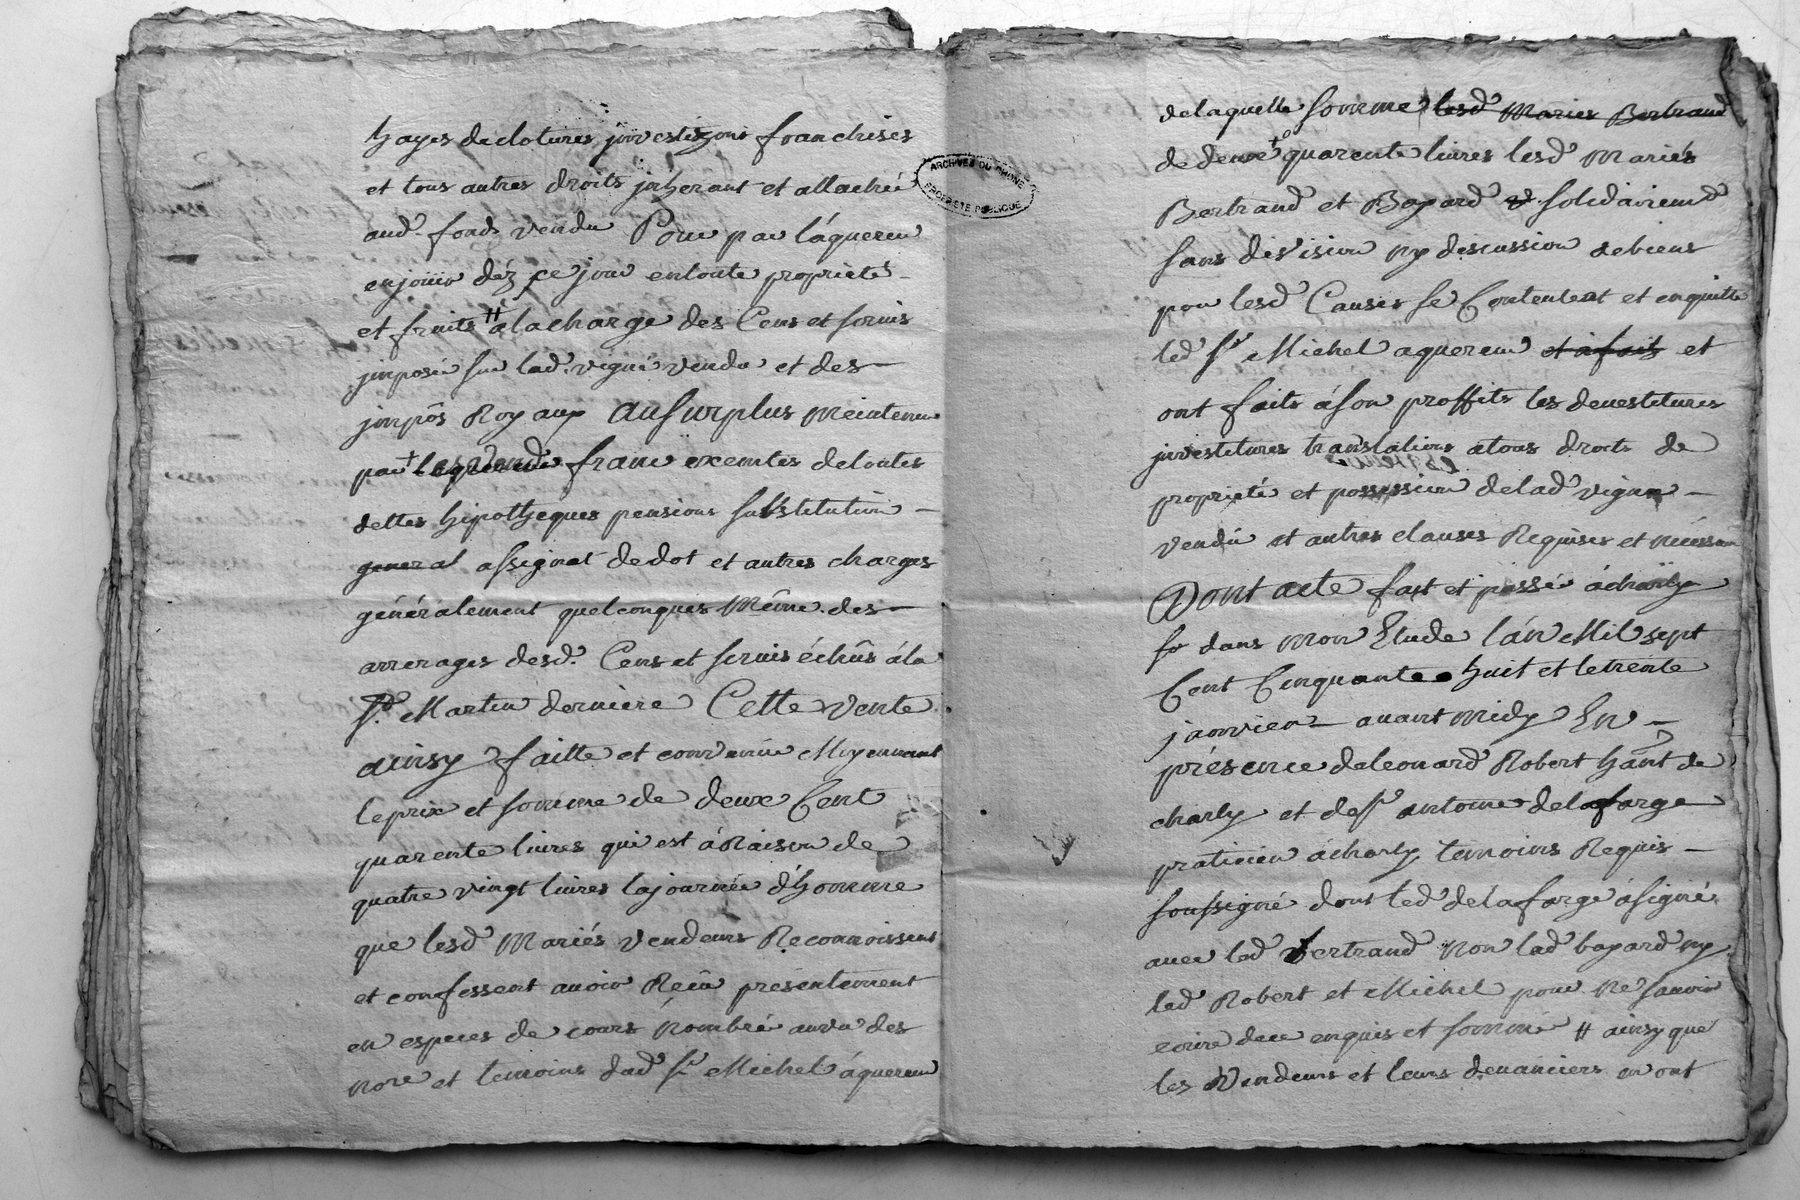 hayes declotures jnvestizons franchises
et tous autres droits jnherant et attaché
aud. fond vendu Pour par láquereur
enjouir déz ce jour entoute proprieté
et fruits # àlacharge des Cens et servis
jmposé sur lad. vigne vendu et des
jmpôs Royaux Ausurplus meintenue
par franc exemtes detoutes
dettes hipotheques pensions substitution
general assignat dedot et autres charges
généralement quelconques même des
arrerages desd. Cens et servis échûs àla
St Martin derniere Cette vente
ainsy faitte et convenüe Moyennant
leprix et somme de deux Cent
quarente livres qui est àRaison de
quatre vingt livres lajournée d'homme
que lesd Mariés vendeurs Reconnoissent
et confessent avoir Reçû présentement
en especes de cours Nombré auvu des
nore et temoins dud Sr Michel áquereur
ARCHIVES DU RHONE
PROPRIETE PUBLIQUE
delaquelle somme lesd Maries Bertrand
de deux quarente livres lesd Mariés
Bertrand et Bayard solidairemt
sans division ny discussion debiens
pour lesd Causes se Contentent et enquitte
led Sr Michel aquereur et àfaits et
ont faits àson proffits les devestitures
jnvestitures translations atous droits de
proprieté et possession delad vigne
vendu et autres clauses Requises et
Dont acte fait et passé àcharly
dans mon Etude lán Mil sept
Cent Cinquante huit et letrente
janvier avant midy En
présence deleonard Robert hant de
charly et de Sr antoine delafarge
praticien àcharly temoins Requis
soussigné dont led delafarge àsigné
avec led Bertrand Non lad bayard ny
led Robert et Michel pour ne sauoir
ecrire dece enquis et sommé # ainsy que
les vendeurs et leurs devanciers en ont